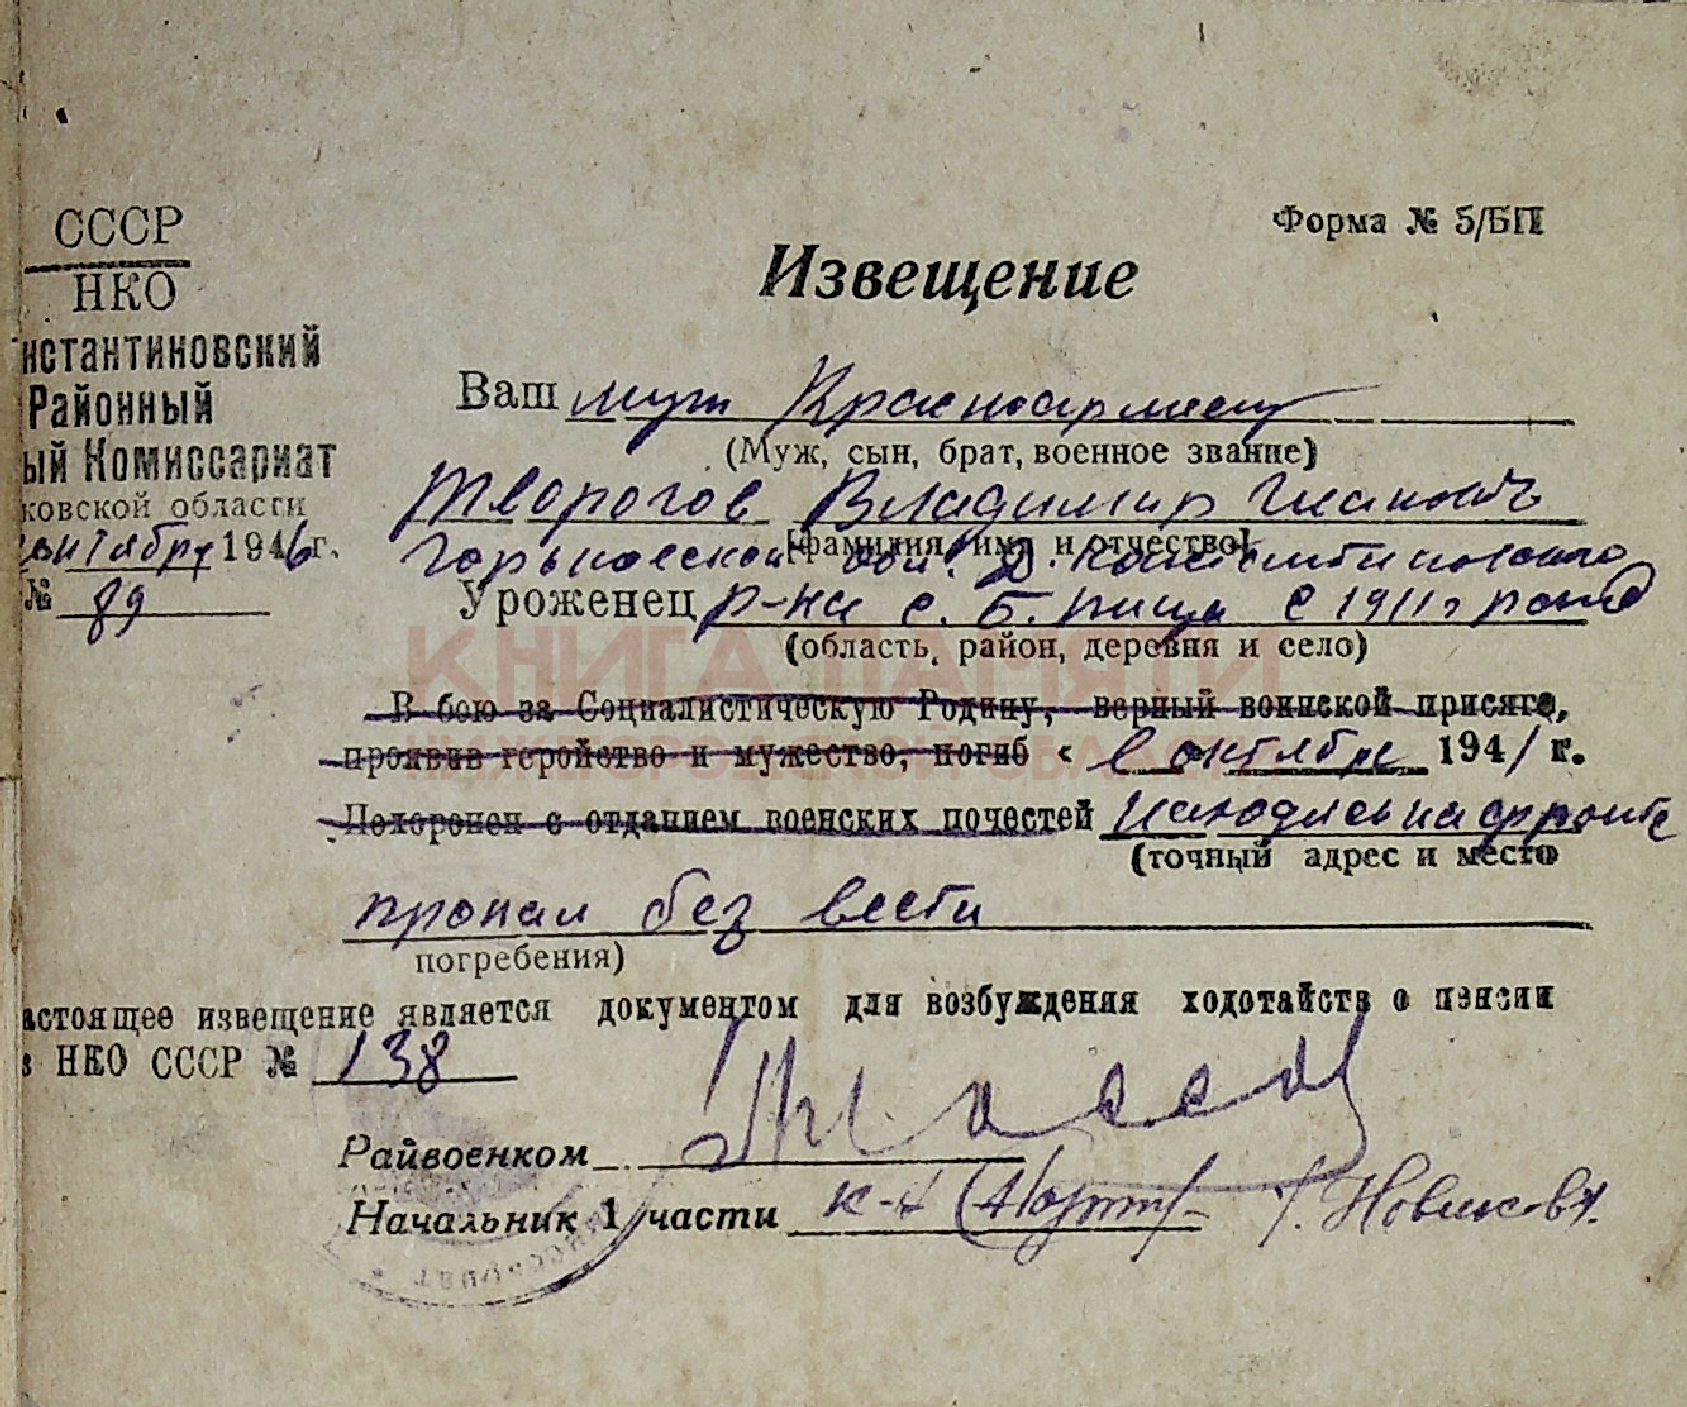 СССР
НКО
нстантиновский
Районный
ый Комиссариат
ковской области
сентября 1946 г.
№ 89
Форма № 5/БП
Извещение
Ваш муж Красноармеец
(Муж, сын, брат, военное звание)
Творогов Владимир Иванович
[фамилия, имя и отчество]
Горьковской обл. Д. Константиновского
Уроженец р-на с. Б. Пица с 1911 г рожд
(область, район, деревня и село)
В бою за Социалистическую Родину, верный воинской присяге,
проявив геройство и мужество, погиб « в октябре 1941 г.
Похоронен с отданием военских почестей находясь на фронте
(точный адрес и место
пропал без вести
погребения)
астоящее извещение является документом для возбуждения ходотайств о пенсии
з НКО СССР № 138
Райвоенком
Начальник 1 части к-н Новиков
КНИГА ПАМЯТИ
НИЖЕГОРОДСКОЙ ОБЛАСТИ